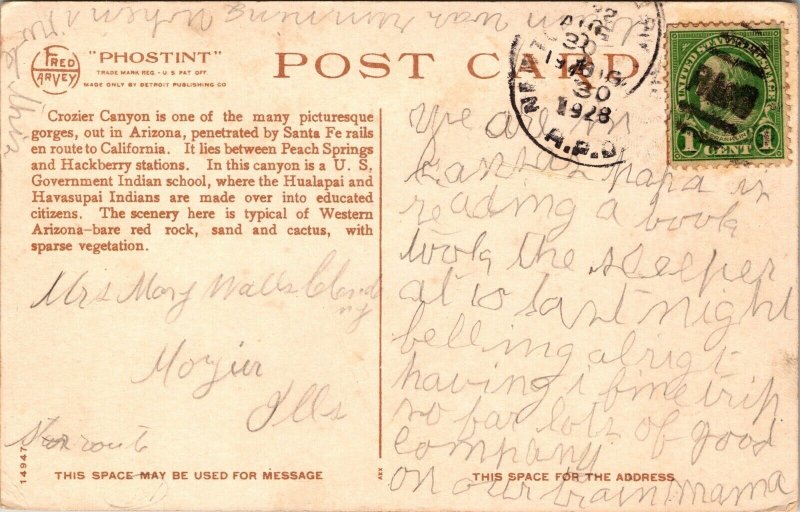 FRED
HARVEY
"PHOSTINT"
TRADE MARK REG. - U S PAT OFF.
MADE ONLY BY DETROIT PUBLISHING CO
POST CARD
Crozier Canyon is one of the many picturesque
gorges, out in Arizona, penetrated by Santa Fe rails
en route to California. It lies between Peach Springs
and Hackberry stations. In this canyon is a U. S.
Government Indian school, where the Hualapai and
Havasupai Indians are made over into educated
citizens. The scenery here is typical of Western
Arizona-bare red rock, sand and cactus, with
sparse vegetation.
Mrs Mary Walls
Ills
14947
THIS SPACE MAY BE USED FOR MESSAGE
THIS SPACE FOR THE ADDRESS
AUG
30
1928
R.P.O.
UNITED STATES POSTAGE
1 CENT 1
we are in
Kansas papa is
reading a book
took the sleeper
at 10 last night
alrigt
having i fine trip
so far lots of good
company
on our train mama
train was running
when i
this